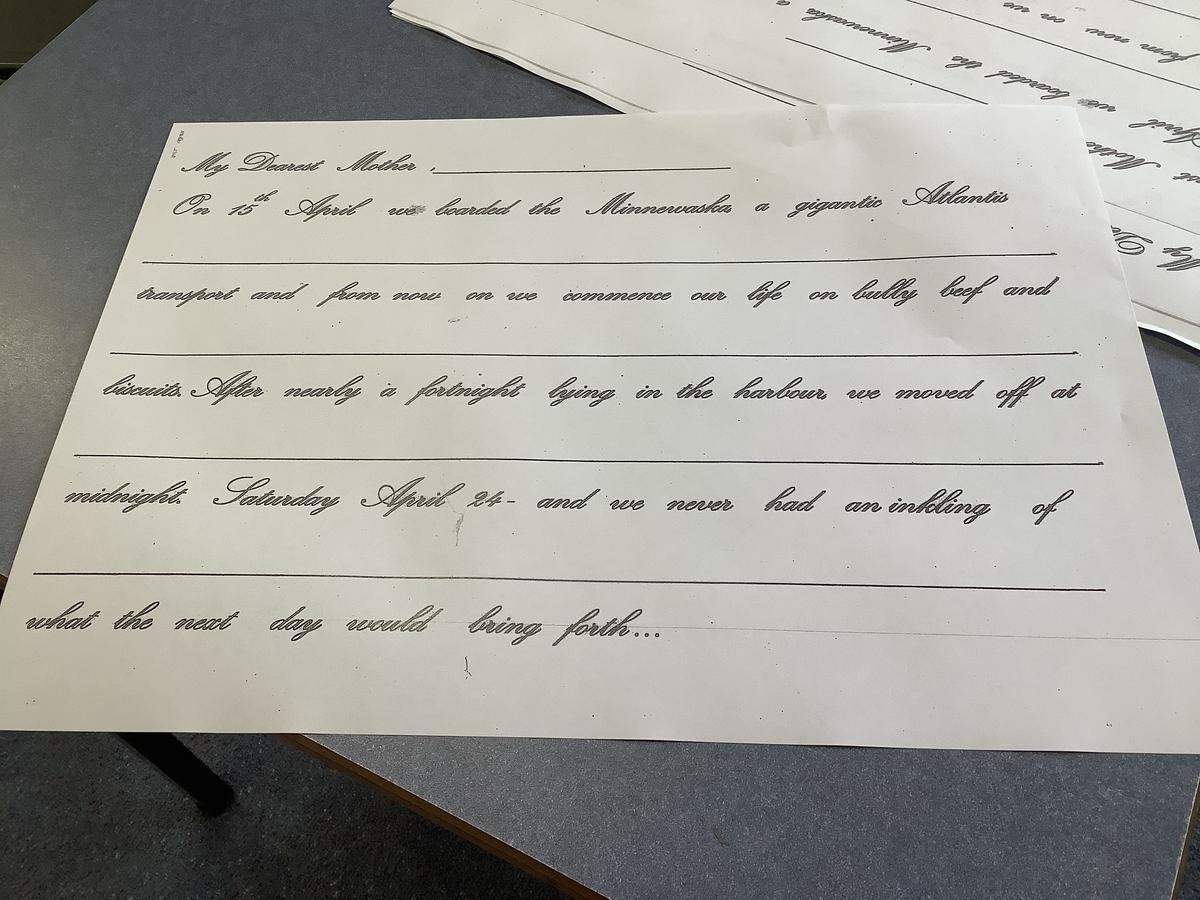 My Dearest Mother,
On 15th April we boarded the Minnewaska a gigantic Atlantis
transport and from now on we commence our life on bully beef and
biscuits. After nearly a fortnight lying in the harbour, we moved off at
midnight. Saturday April 24- and we never had an inkling of
what the next day would bring forth...
My
April we boarded the Minnewaska a
from now on we